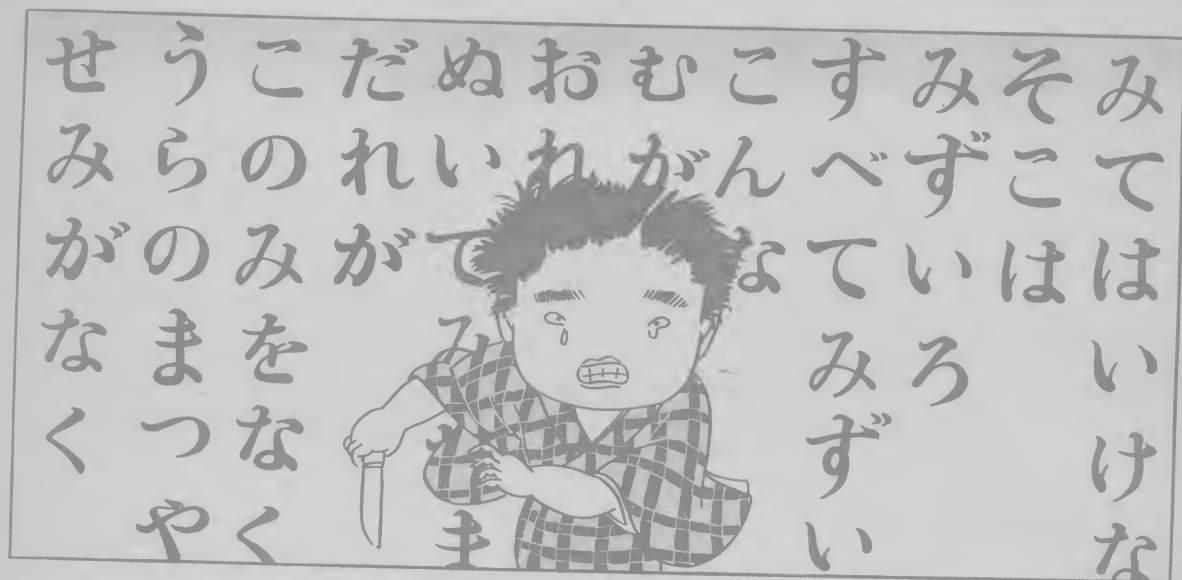 みてはいけな
そこは
みずいろ
すべてみずい
こんな
むが
おれ
ぬいてみ ま
だれが
このみをなく
うらのまつや
せみがなく